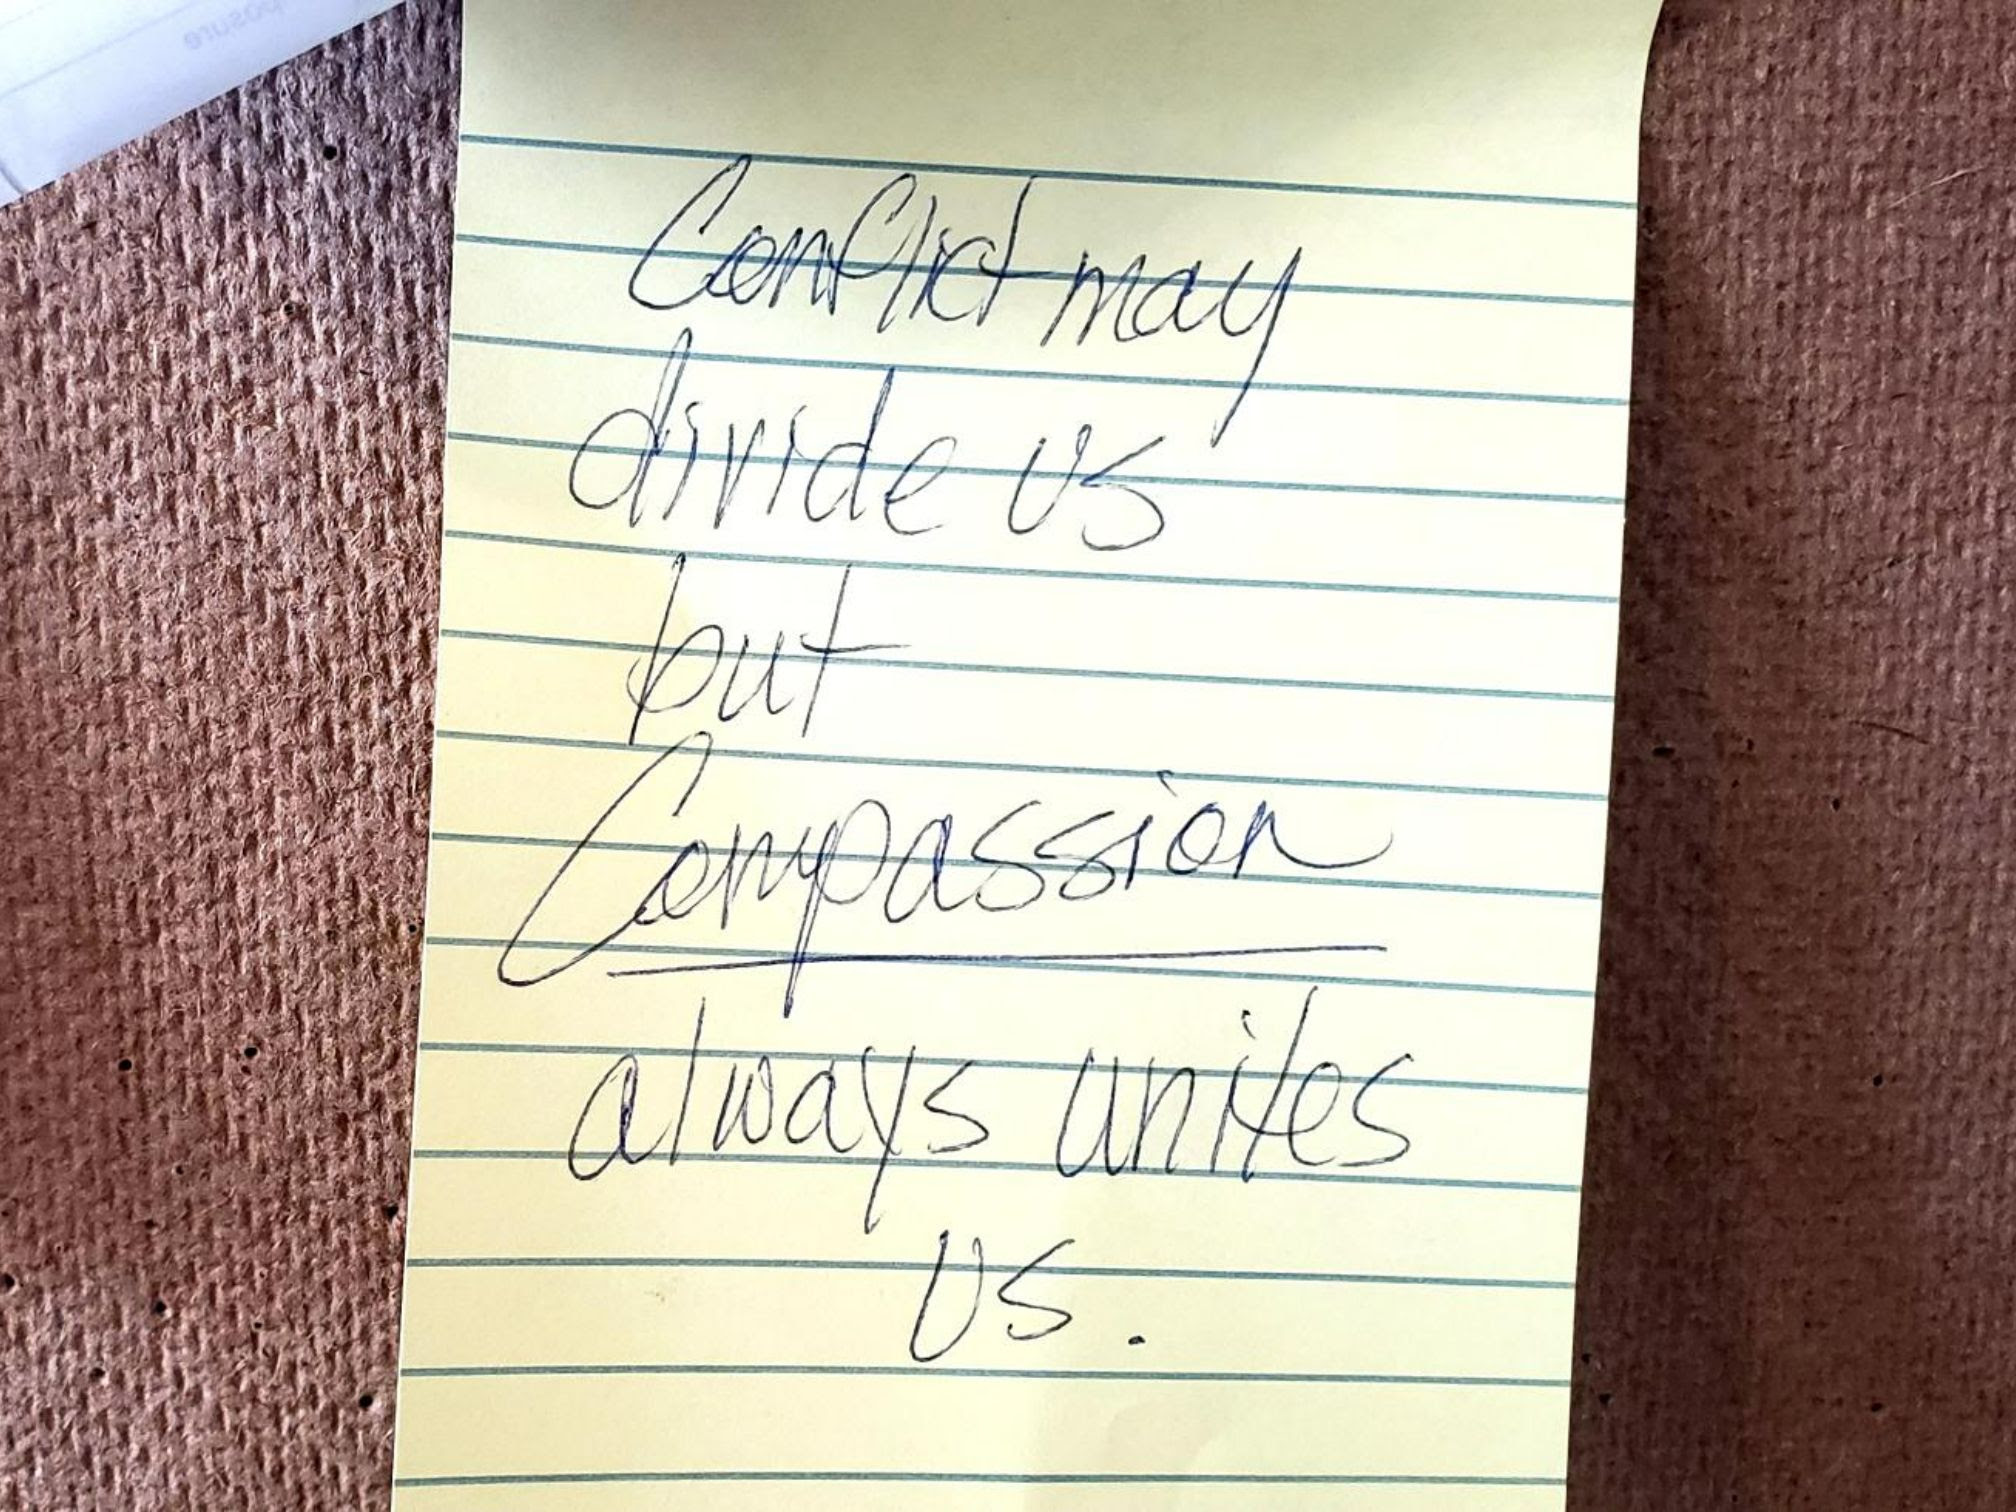 Conflict may
divide us
but
Compassion
always unites
us.